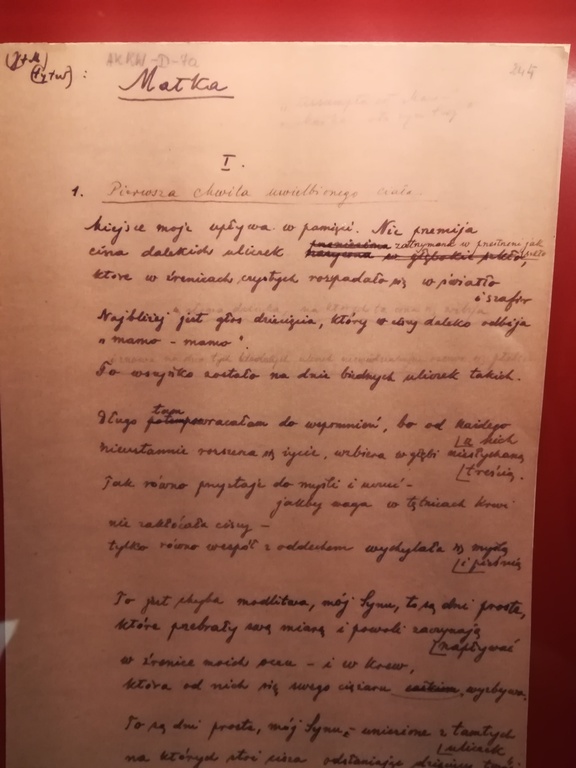 (J+M)
(Tytuł) :
AKKW-D-7a
244
Matka
I.
1. Pierwsza chwila uwielbionego ciała.
Miejsce moje upływa w pamięci. Nie przemija
cisza dalekich uliczek zatrzymana w przestrzeni jak szkło
które w źrenicach czystych rozpadało się w światło
i szafir
Najbliżej jest głos dziecięcia, który w ciszy daleko odbija
"mamo - mamo".
To wszystko zostało na dnie biednych uliczek takich.
Długo tam wracałam do wspomnień, bo od każdego
z nich
nieustannie rozszerza się życie, wzbiera w głębi niesłychaną
treścią.
Tak równo przystaje do myśli i uczuć -
jakby waga w tętnicach krwi
nie zakłócała ciszy -
tylko równo wespół z oddechem wychylała się myślą
i pieśnią
To jest chyba modlitwa, mój Synu, to są dni proste,
które przebrały swą miarę i powoli zaczynają
napływać
w źrenice moich oczu - i w krew,
która od nich się swego ciężaru wyzbywa.
To są dni proste, mój Synu, - uniesione z tamtych
uliczek
na których stoi cisza odsłaniając